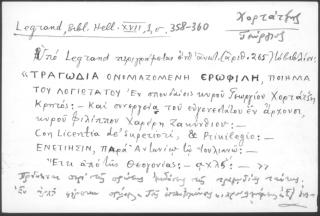 Legrand, Bibl. Hell. XVII, 1, σ. 358-360
Χορτάτζης
Γεώργιος
Ὑπὸ Legrand περιγράφεται ὑπ' ἀριθ. (ἀριθ. 265)
«ΤΡΑΓΩΔΙΑ ΟΝΟΜΑΖΟΜΕΝΗ ΕΡΩΦΙΛΗ, ΠΟΙΗΜΑ
ΤΟΥ ΛΟΓΙΩΤΑΤΟΥ Ἐν σπουδαίοις κυροῦ Γεωργίου Χορτάτζη
Κρητός: – Καὶ συνεργεία τοῦ εὐγενεστάτου ἐν ἄρχουσι
κυροῦ Φιλίππου Χαρέρη Ζακυνθίου: –
Con Licentia de' superiori, & Privilegio: –
ΕΝΕΤΙΗΣΙΝ, παρὰ Ἀντωνίῳ τῷ Ἰουλιανῷ: –
Ἔτει ἀπὸ τῆς Θεογονίας: – αχλζ: – »
Πρόκειται περὶ τῆς πρώτης ἐκδόσεως τῆς τραγῳδίας ταύτης.